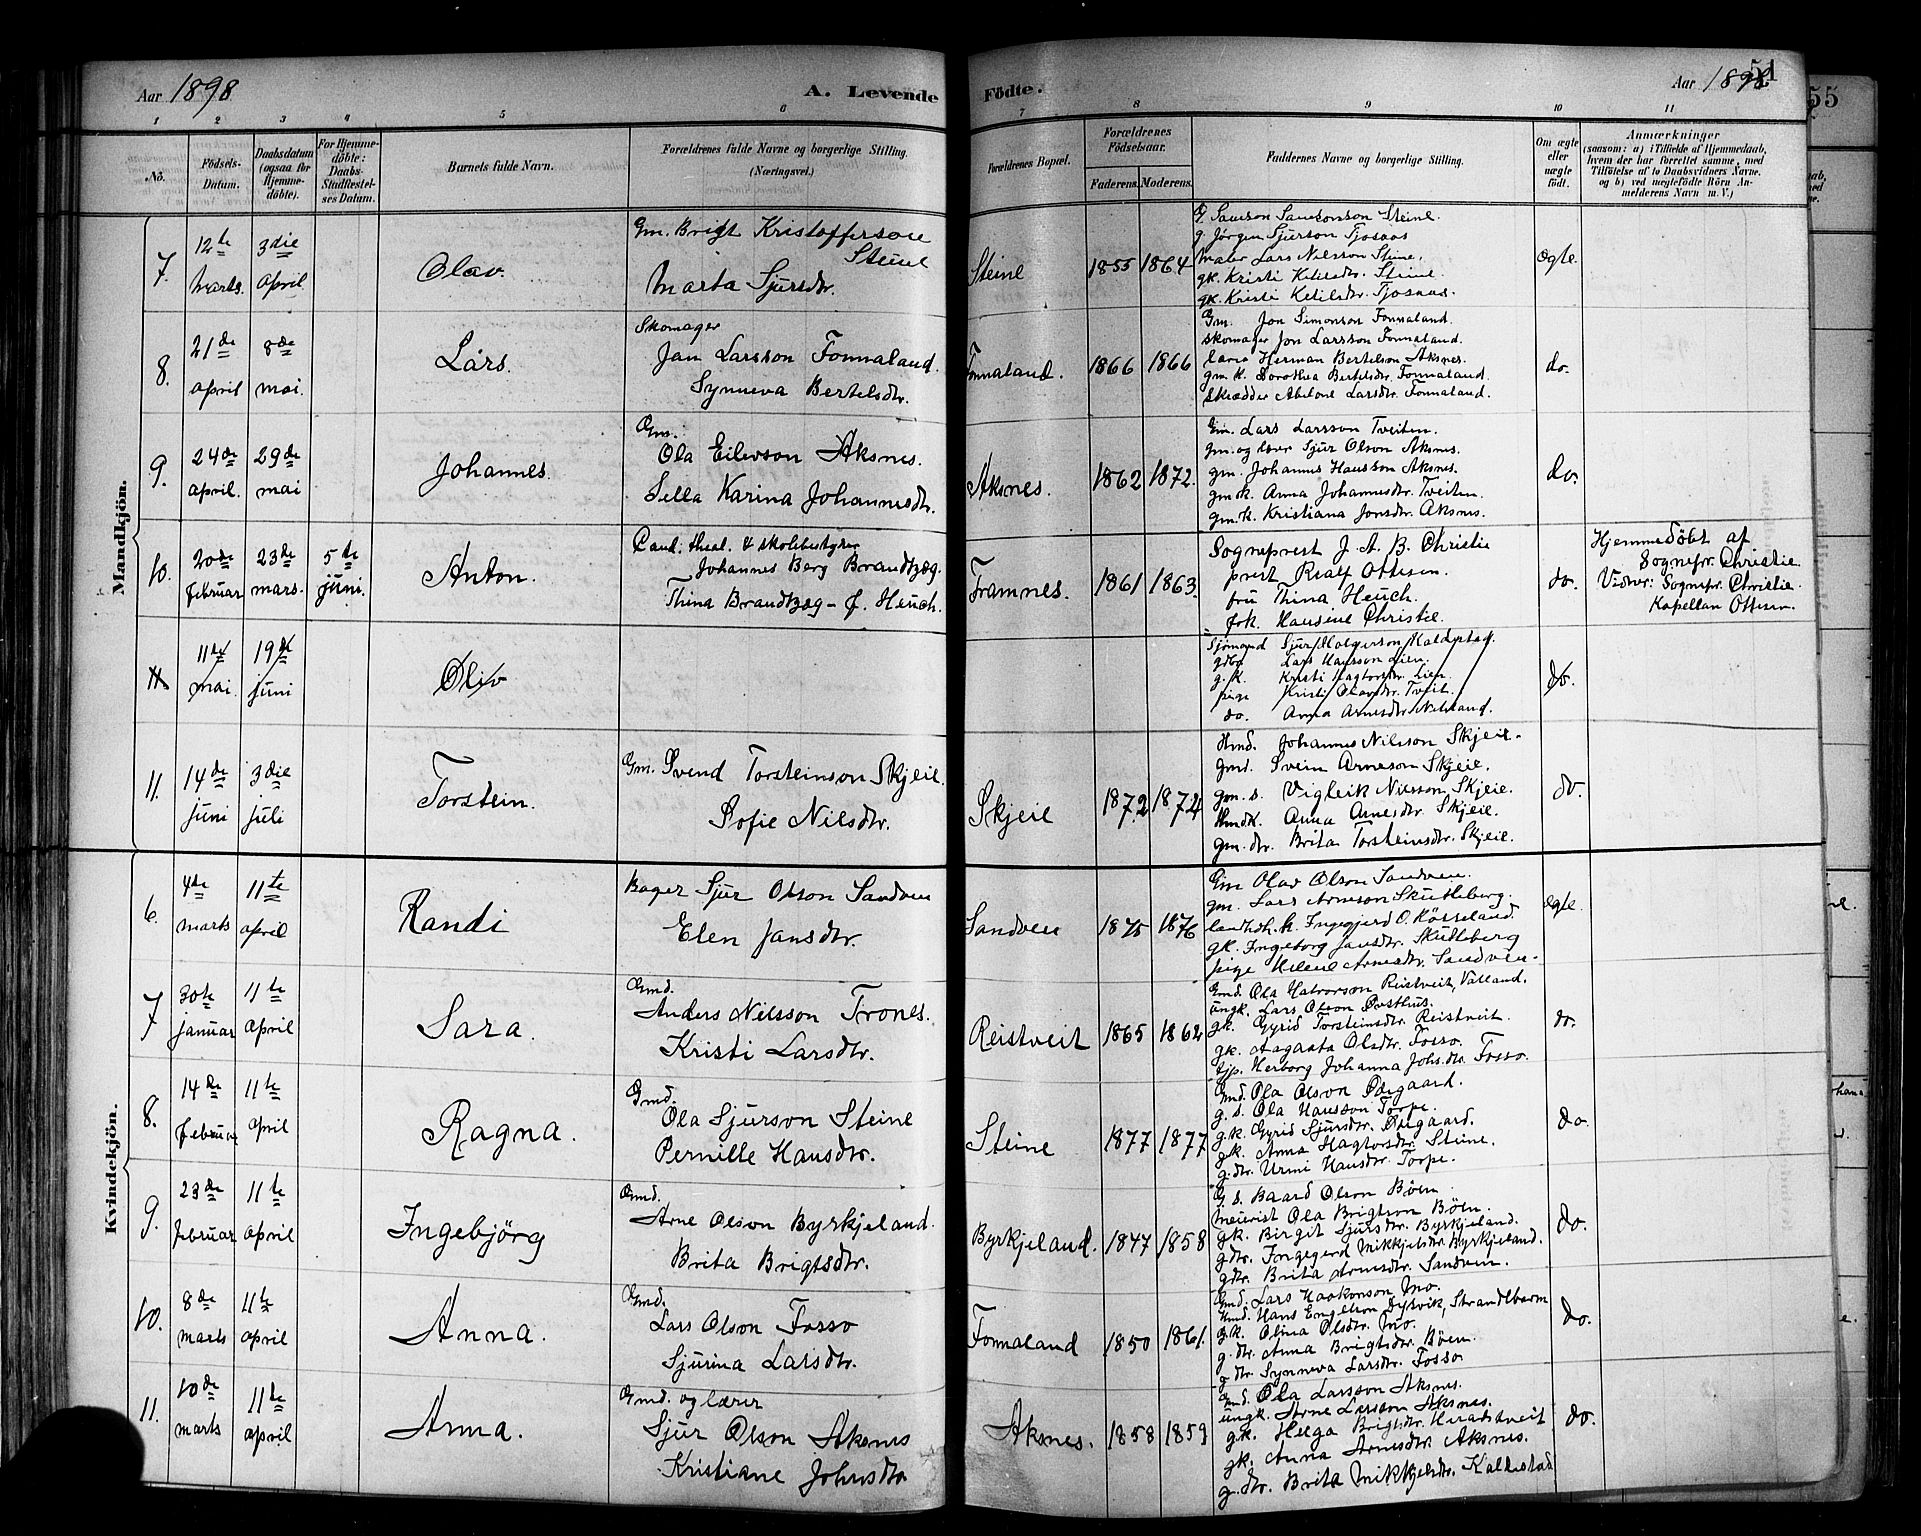 Aar 1898
A. Levende
Födte.
Aar 1898
51
55
1 2 3 4 5 6 7 8 9 10 11
No.
Födsels-
Datum.
Daabsdatum
(ogsaa for
Hjemme-
döbte).
For Hjemme-
döbte:
Daabs-
Stadfæstel-
ses Datum.
Barnets fulde Navn.
Forældrenes fulde Navne og borgerlige Stilling.
(Næringsvei.)
Forældrenes Bopæl.
Forældrenes
Födselsaar.
Faderens. Moderens.
Faddernes Navne og borgerlige Stilling.
Om ægte
eller
uægte
födt.
Anmærkninger
(saasom: a) i Tilfælde af Hjemmedaab,
hvem der har forrettet samme, med
Tilföielse af to Daabsvidners Navne.
og b) ved uægtefödte Börn An-
melderens Navn m. V.)
Mandkjön.
7. 12te marts. 3die april Olav.
Gm. Brigt Kristoffersone
Steine
Marta Sjursdtr.
Steine 1855 1864
G. Samson Samsonson Steine.
g. Jørgen Sjurson Tjosaas
Maler Lars Nilsson Steine.
gk. Kristi Ketilsdtr. Steine.
gk. Kristi Ketilsdtr. Tjosaas.
ægte.
8. 21de april 8de mai. Lars.
Skomager
Jan Larsson Fonnaland.
Synneva Bertelsdtr.
Fonnaland. 1866 1866
Gm. Jon Simonson Fonnaland.
skomager Jon Larsson Fonnaland.
Herman Bertelson Aksnes.
gm. k. Dorothea Bertelsdtr. Fonnaland.
Skrædder Abelone Larsdtr. Fonnaland.
do.
9. 24de april. 29de mai Johannes.
Gm.
Ola Eilevson Aksnes.
Sella Karina Johannesdtr.
Aksnes. 1862 1872.
Gm. Lars Larsson Tveiten.
gm. og lærer Sjur Olson Aksnes.
gm. Johannes Hansson Aksnes.
gmk. Anna Johannesdtr. Tveiten.
gm.k. Kristiana Jonsdtr. Aksnes.
do.
10. 20de februar 23de mars. 5te juni. Anton.
Cand. theol. & skolebestyrer
Johannes Berg Brandtzæg.
Thina Brandtzæg - f. Heuch.
Framnes. 1861 1863.
Sogneprest J. A. B. Christie
prest Rolf Ottesen.
fru Thina Heuch.
frk. Hansine Christie.
do.
Hjemmedöbt af
Sognepr. Christie
Vidner: Sognepr. Christie.
Kapellan Ottesen.
11 11te mai. 19de juni Oliv
Sjömand Sjur Holgerson Kaldestad.
Lars Hansson Lien.
g.k. Kristi Hagtorsdtr. Lien.
pige Kristi Olavsdtr. Tveit.
do. Anna Arnesdtr. Neteland.
do.
11. 14de juni 3die juli Torstein.
Gm. Svend Torsteinson Skjeie.
Sofie Nilsdtr.
Skjeie 1872 1874
Hmd. Johannes Nilsson Skjeie.
gmd. Svein Arneson Skjeie.
gm. s. Vigleik Nilsson Skjeie.
Hmdk. Anna Arnesdtr. Skjeie.
gm. dtr. Brita Torsteinsdtr. Skjeie.
do.
Kvindekjön.
6. 4de marts 11te april Randi
Bager Sjur Olson Sandven
Elen Jansdtr.
Sandven 1875 1876
Gm Olav Olson Sandven.
gm. Lars Arneson Skutleberg.
landh. k. Ingegjerd O. Kösseland.
gk. Ingeborg Jansdtr. Skutleberg
pige Helene Arnesdtr. Sandven.
ægte.
7 30te januar 11te april Sara.
Gmd.
Anders Nilsson Trones.
Kristi Larsdtr.
Reistveit 1865 1862
Gmd. Ola Halvorson Reistveit, Valland.
ungk. Lars Olson Østhus.
gk. Gyrid Torsteinsdtr. Reistveit.
gk. Aagaata Olsdtr. Fosso.
tjp. Herborg Johanna Johs.dtr. Fosso.
do.
8. 14de februar 11te april Ragna.
Gmd.
Ola Sjurson Steine
Pernille Hansdtr.
Steine 1877 1877
Gmd. Ola Olson Øregaard.
g. s. Ola Hansson Torpe.
g.k. Gyrid Sjursdtr. Øregaard.
gk. Anna Hagtorsdtr. Steine.
g.dtr. Urmi Hansdtr. Torpe.
do.
9. 23de februar 11te april Ingebjörg
Gmd.
Arne Olson Byrkjeland.
Brita Brigtsdtr.
Byrkjeland. 1847 1858
G. s. Baard Olson Böen
Meierist Ola Brigtson Böen.
gk. Birgit Sjursdtr. Byrkjeland.
gdtr. Ingegerd Mikkjelsdtr. Byrkjeland.
gdtr. Brita Arnesdtr. Sandven.
do.
10. 8de marts 11te april Anna.
Gmd.
Lars Olson Fosso
Sjurina Larsdtr.
Fonnaland 1850 1861.
Gmd. Lars Haakonson Mo.
Gmd. Hans Engelson Dysvik, Strandebarm
gk. Olina Olsdtr. Mo.
g. dtr. Anna Brigtsdtr. Böen.
g. dtr. Synneva Larsdtr. Fosso
do.
11. 10de marts 11te april Anna.
Gmd. og lærer
Sjur Olson Aksnes
Kristiane Johnsdtr
Aksnes. 1858 1859
Gmd. Ola Larsson Aksnes.
ungk. Arne Larsson Aksnes.
gk. Helga Brigtsdtr. Heradstveit
gk. Anna Arnesdtr. Aksnes.
g. dtr. Brita Mikkjelsdtr. Kaldestad
do.